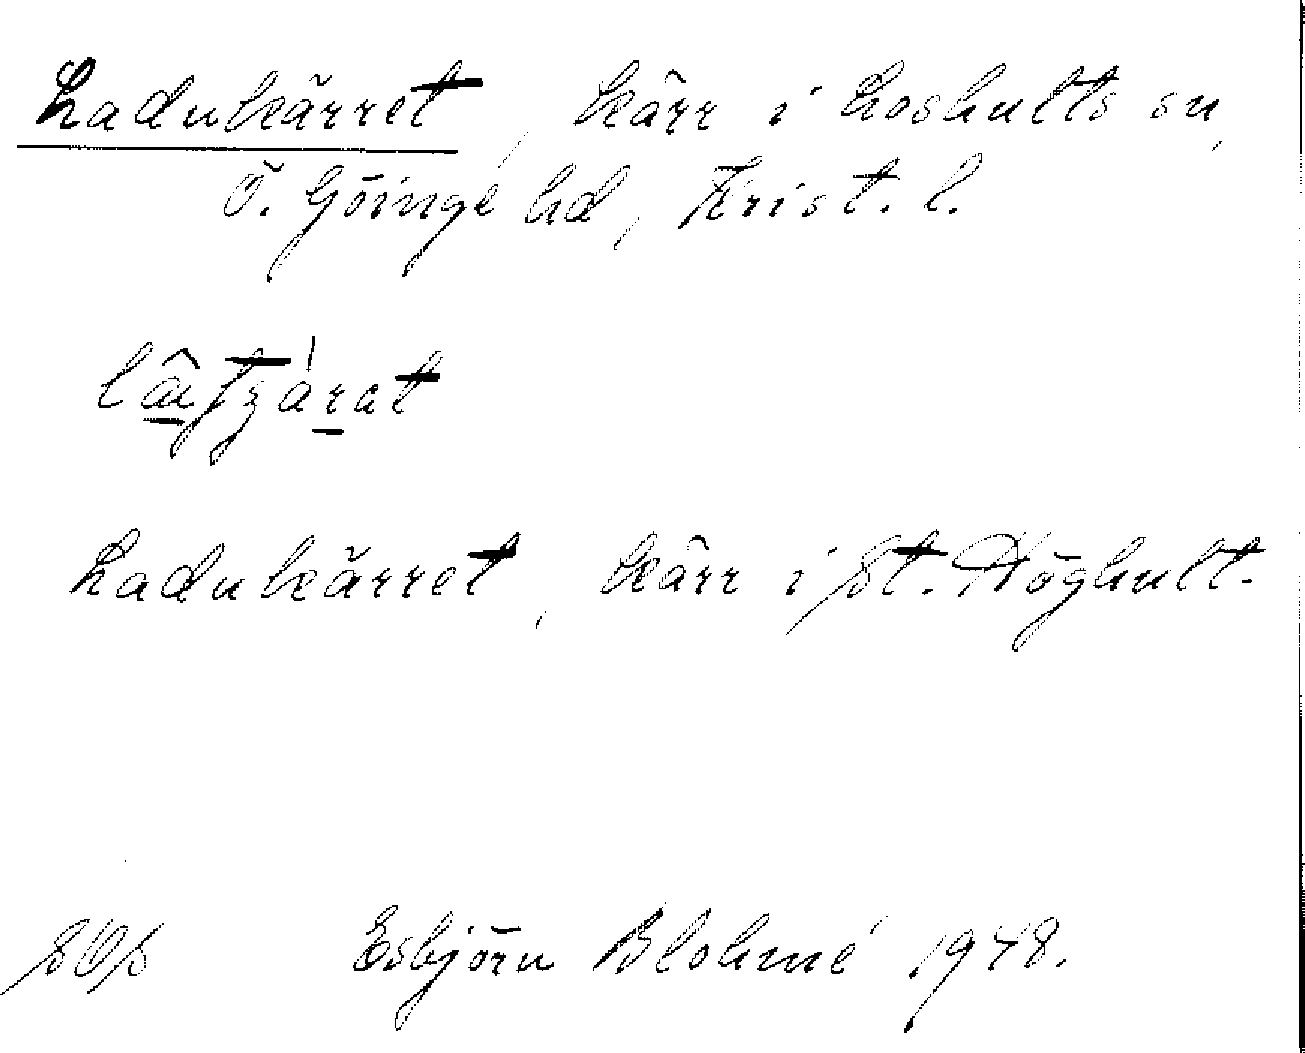 Ladukärret, kärr i Loshults sn,
Ö. Göinge hd, Krist. l.
Ladukärret, kärr i St. Höghult.
Esbjörn Blohmé 1948.